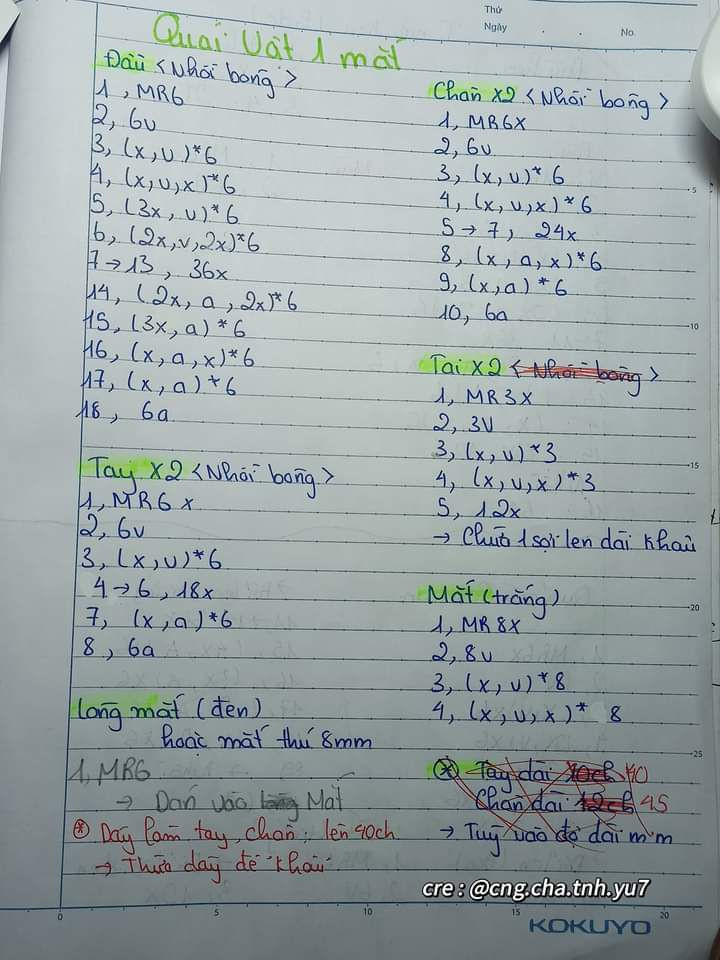 Thứ
Ngày
No.
Quái Vật 1 mắt
Đầu <Nhồi bông>
1, MR6
2, 6v
3, (x,v)*6
4, (x,v,x)*6
5, (3x, v)*6
6, (2x,v,2x)*6
7→13, 36x
14, (2x, a, 2x)*6
15, (3x, a)*6
16, (x,a,x)*6
17, (x,a)*6
18, 6a
Tay x2 <Nhồi bông>
1, MR6x
2, 6v
3, (x,v)*6
4→6, 18x
7, (x,a)*6
8, 6a
lòng mắt (đen)
hoặc mắt thú 8mm
1, MR6
→ Dán vào Mắt
* Dây làm tay, chân: lên 40ch
→ Thừa dây để khâu
Chân x2 <Nhồi bông>
1, MR6x
2, 6v
3, (x,v)*6
4, (x,v,x)*6
5→7, 24x
8, (x,a,x)*6
9, (x,a)*6
10, 6a
Tai x2 <Nhồi bông>
1, MR3x
2, 3v
3, (x,v)*3
4, (x,v,x)*3
5, 12x
→ Chừa 1 sợi len dài khâu
Mắt (trắng)
1, MR8x
2, 8v
3, (x,v)*8
4, (x,v,x)* 8
* Tay dài 40
Chân dài 12ch 45
→ Tuỳ vào độ dài mm
cre : @cng.cha.tnh.yu7
KOKUYO
5
10
15
20
25
0
5
10
15
20